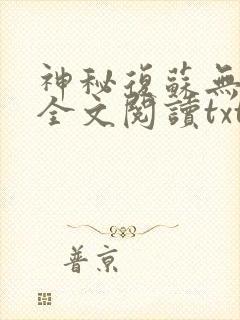 神秘復蘇無
全文閱讀txt
普京